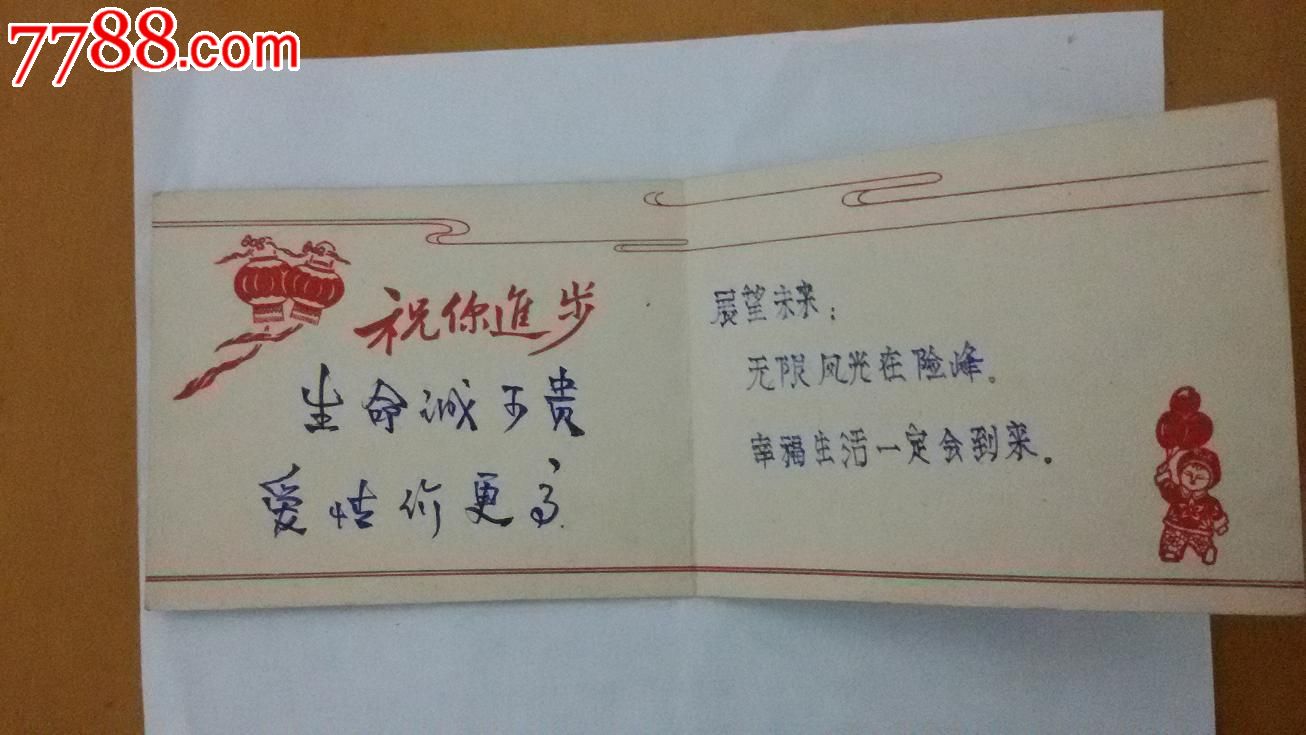 7788.com
祝你進步
生命诚可贵
爱情价更高
展望未来：
无限风光在险峰。
幸福生活一定会到来。